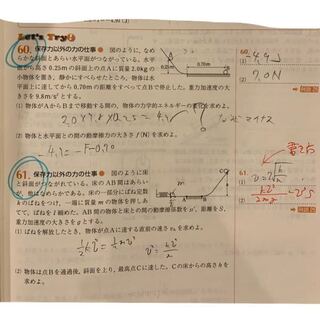 Let's Try!
60. 保存力以外の力の仕事 ● 図のように，なめ
らかな斜面とあらい水平面がつながっている。水平面
から高さ 0.25m の斜面上の点Aに質量 2.0kg の
小物体を置き，静かにすべらせたところ，物体は水平
面上に達してから 0.70m の距離をすべって点Bで停止した。重力加速度の大
きさを 9.8m/s² とする。
(1) 物体がAからBまで移動する間の，物体の力学的エネルギーの
2.0×9.8×0.25=4.9
なぜマイナス
(2) 物体と水平面との間の動摩擦力の大きさ f〔N〕を求めよ。
-4.9=-F×0.70
0.70m
60.
(1) -4.9J
(2) 7.0N
61. 保存力以外の力の仕事 ● 図のように床
と斜面がつながれている。床のAB間はあらい
が，他はなめらかである。床の一部分にばね定数
kのばねをつけ，一端に質量mの物体を押し当
てて，ばねをℓ縮めた。AB間の物体と床との間の動摩擦係数をμ′，距離をS，
重力加速度の大きさをgとする。
(1) ばねを解放したとき，物体が点Aに達する直前の速さv₀を求めよ。
(2) 物体は点Bを通過後，斜面を上り，最高点Cに達した。Cの床からの高さh
を求めよ。
61.
(1)
(2)